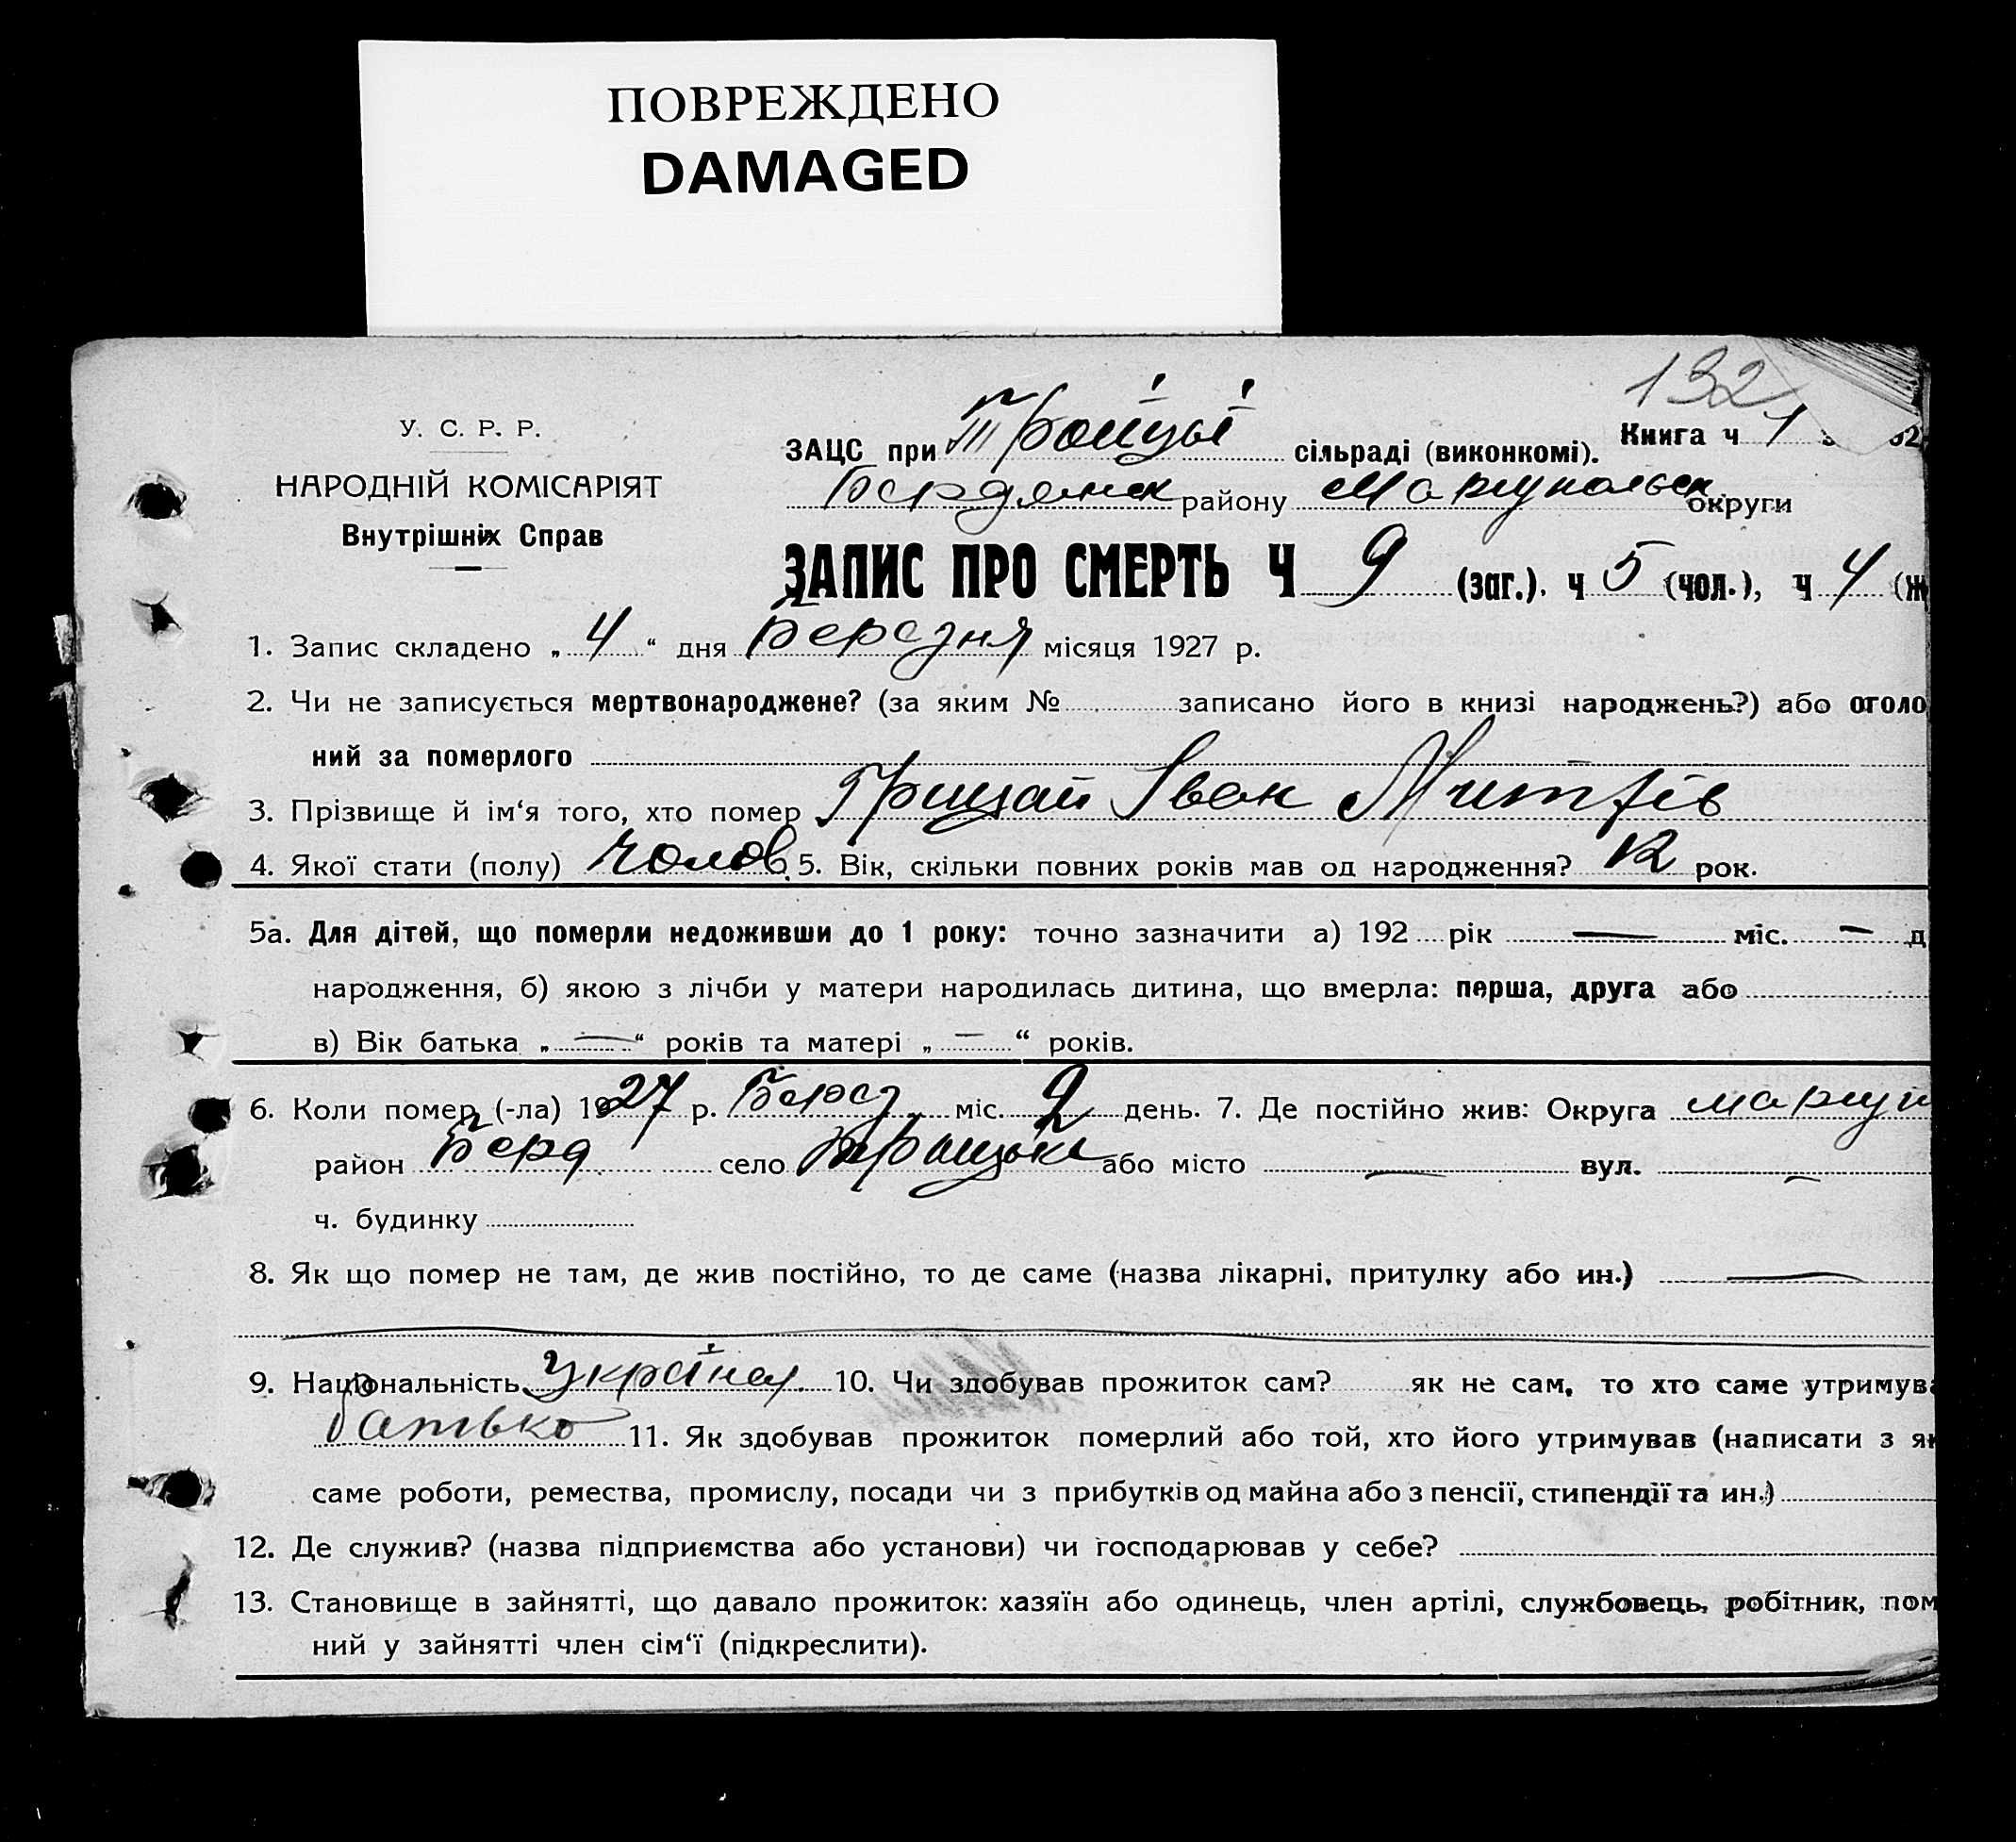 ПОВРЕЖДЕНО
DAMAGED
132
У. С. Р. Р.
НАРОДНІЙ КОМІСАРІЯТ
Внутрішніх Справ
ЗАЦС при Тройцькі сільраді (виконкомі). Книга ч 1
Бердянск району Мариупольск округи
ЗАПИС ПРО СМЕРТЬ Ч 9 (заг.). ч 5 (чол.), ч 4 (ж
1. Запис складено „ 4 “ дня Березня місяця 1927 р.
2. Чи не записується мертвонароджене? (за яким № записано його в книзі народжень?) або оголо
ний за померлого
3. Прізвище й ім‘я того, хто помер Грицай Іван Митрів
4. Якої стати (полу) Чолов. 5. Вік, скільки повних років мав од народження? 12 рок.
5а. Для дітей, що померли недоживши до 1 року: точно зазначити а) 192 рік — міс. — д
народження, б) якою з лічби у матери народилась дитина, що вмерла: перша, друга або
в) Вік батька „ — “ років та матері „ — “ років.
6. Коли помер (-ла) 1927 р. Берез. міс. 2 день. 7. Де постійно жив: Округа Мариуп
район Берд село або місто — вул. —
ч. будинку
8. Як що помер не там, де жив постійно, то де саме (назва лікарні, притулку або ин.) —
9. Національність Україн. 10. Чи здобував прожиток сам? як не сам, то хто саме утримува
батько 11. Як здобував прожиток померлий або той, хто його утримував (написати з як
саме роботи, ремества, промислу, посади чи з прибутків од майна або з пенсії, стипендії та ин.)
12. Де служив? (назва підприємства або установи) чи господарював у себе?
13. Становище в зайнятті, що давало прожиток: хазяїн або одинець, член артілі, службовець, робітник, пом
ний у зайнятті член сім‘ї (підкреслити).